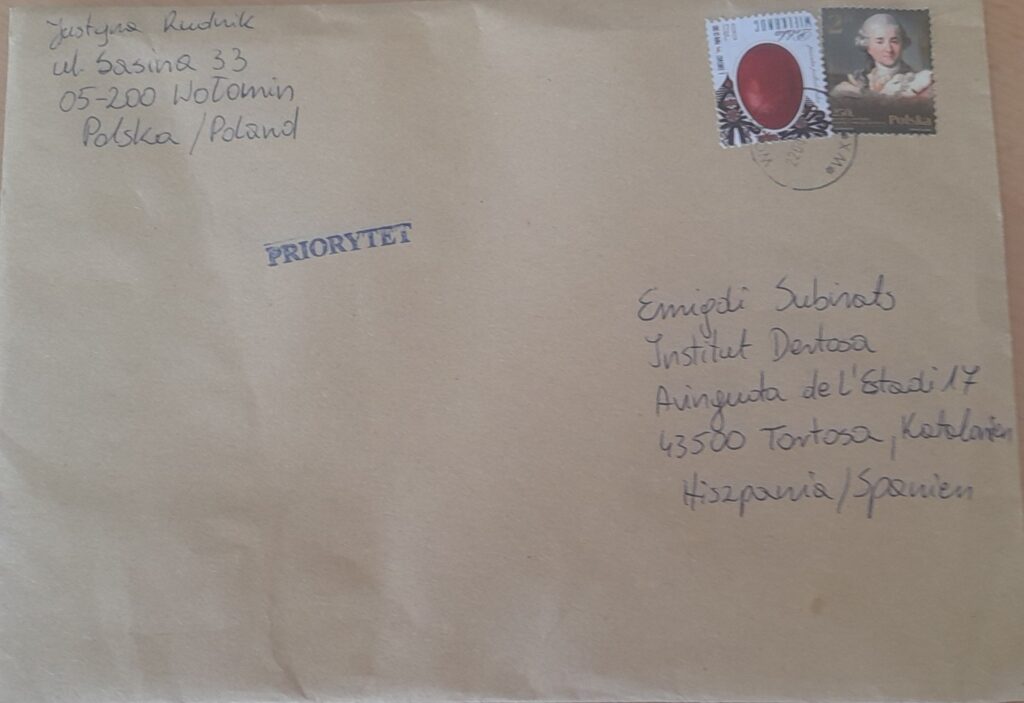 Justyna Rudnik
ul. Sasina 33
05-200 Wołomin
Polska / Poland
PRIORYTET
WIELKANOC
Polska
Emigdi Subirats
Institut Dertosa
Avinguda de l'Estadi 17
43500 Tortosa, Katalonien
Hiszpania / Spanien